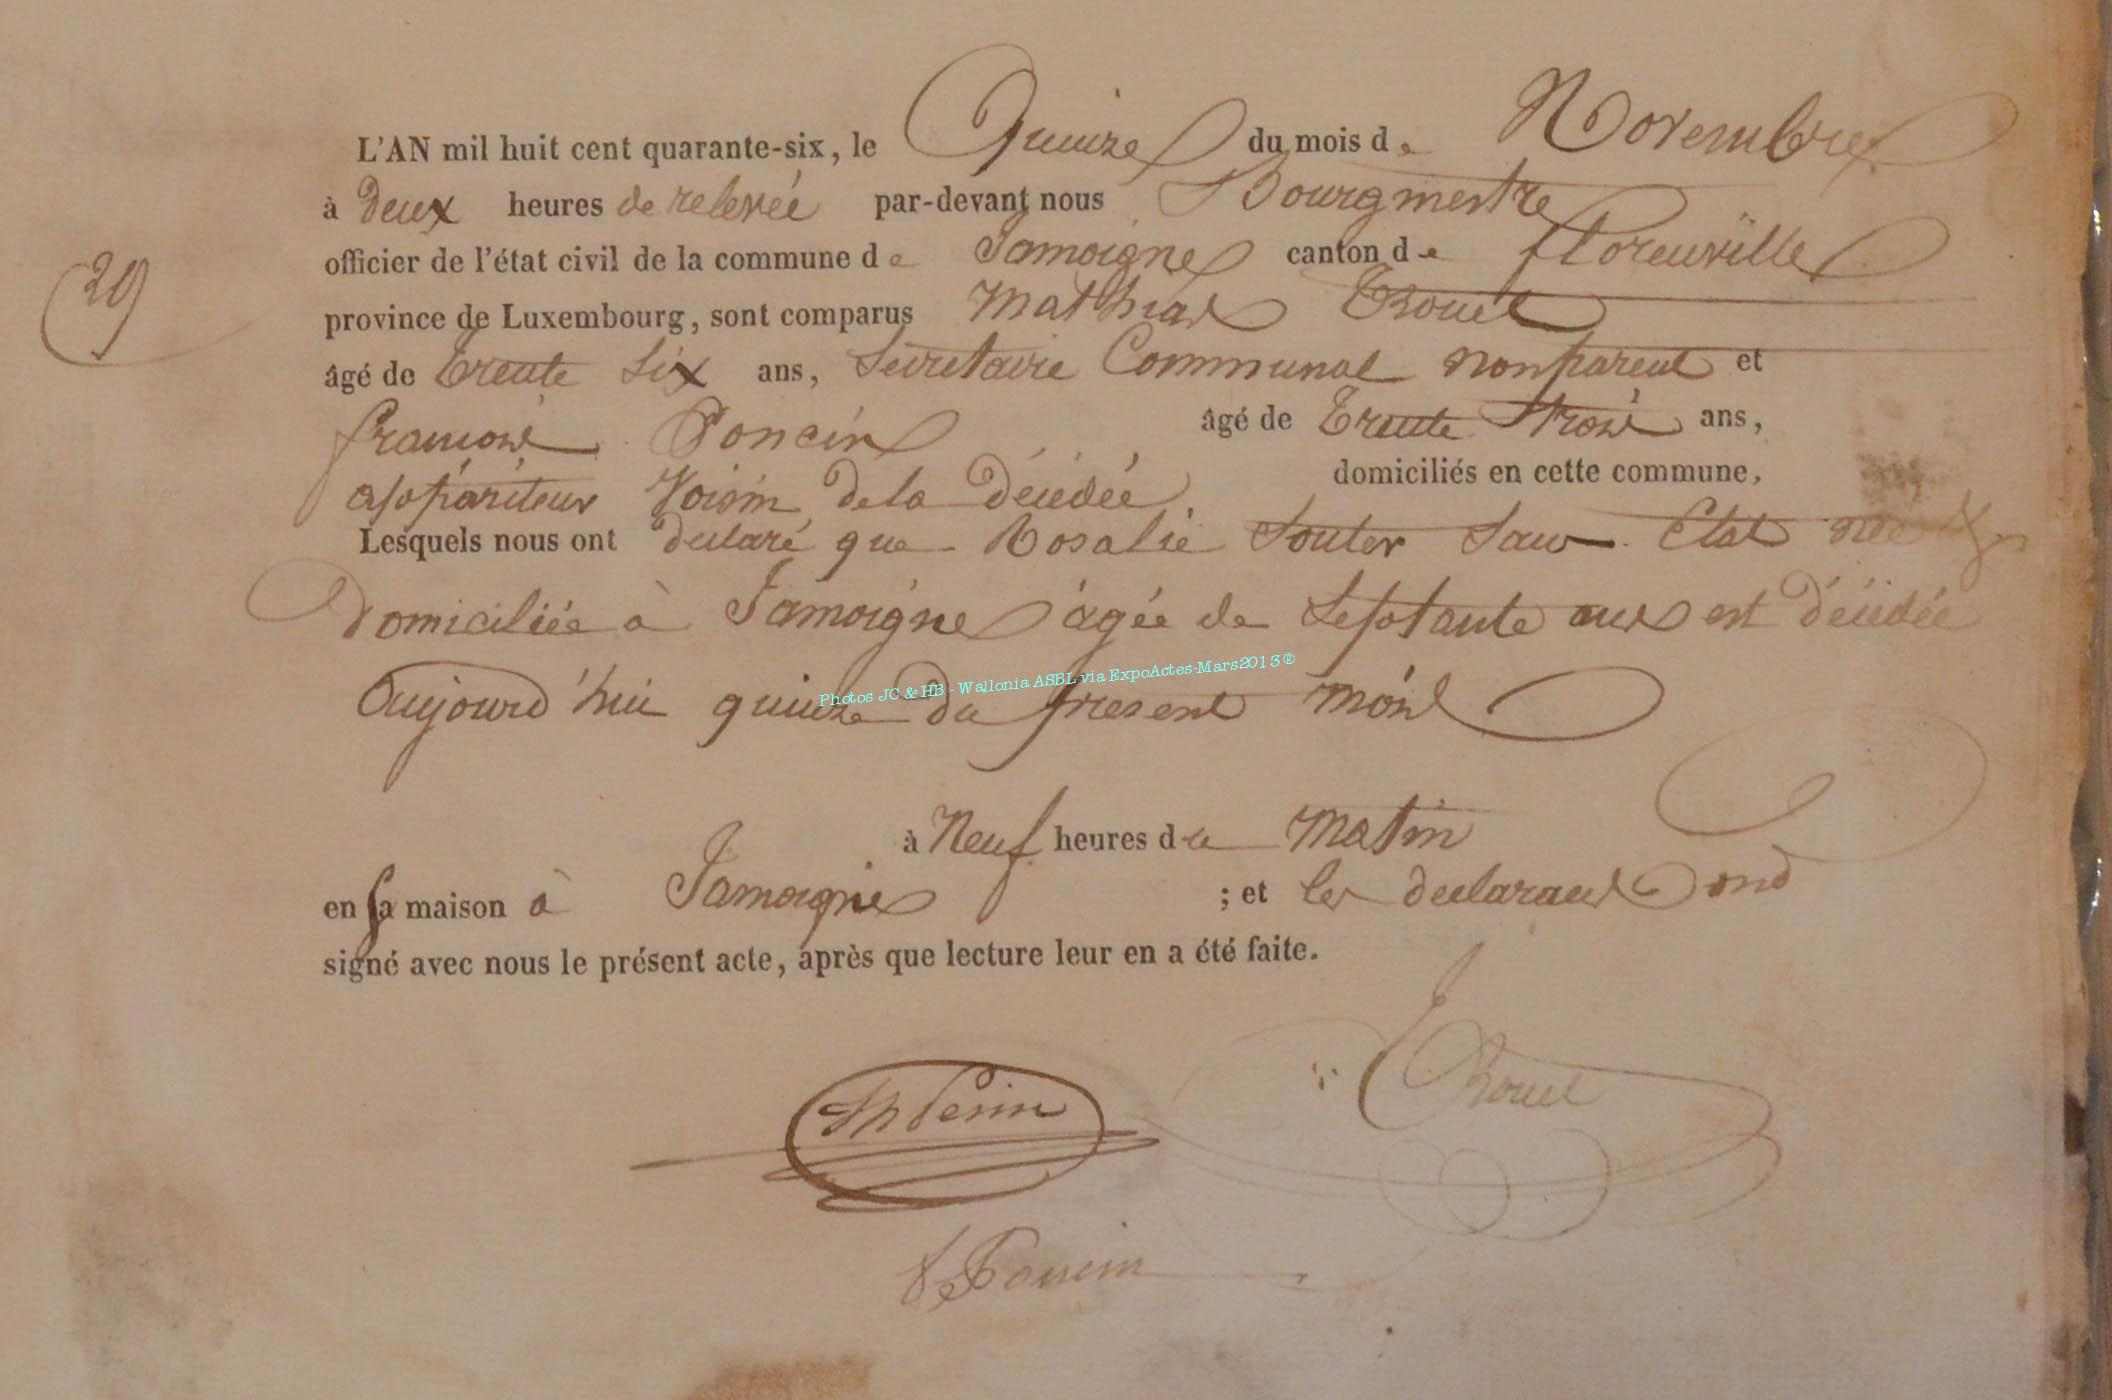 L'AN mil huit cent quarante-six, le Quinze du mois de Novembre
à deux heures de relevée par-devant nous Bourgmestre
officier de l'état civil de la commune de Jamoigne canton de florenville
20
province de Luxembourg, sont comparus Mathias
âgé de trente Six ans, Secretaire Communal non parent et
françois Poncin âgé de trente trois ans,
appariteur Voisin de la décédée domiciliés en cette commune,
Lesquels nous ont declaré que Rosalie Souter Sans Etat née
domiciliée à Jamoigne agée de Septante ans est décédée
aujourd'hui quinze du present mois
Photos JC & HB - Wallonia ASBL via ExpoActes-Mars2013®
à Neuf heures du Matin
en sa maison à Jamoigne ; et les declarans ond
signé avec nous le présent acte, après que lecture leur en a été faite.
Poncin